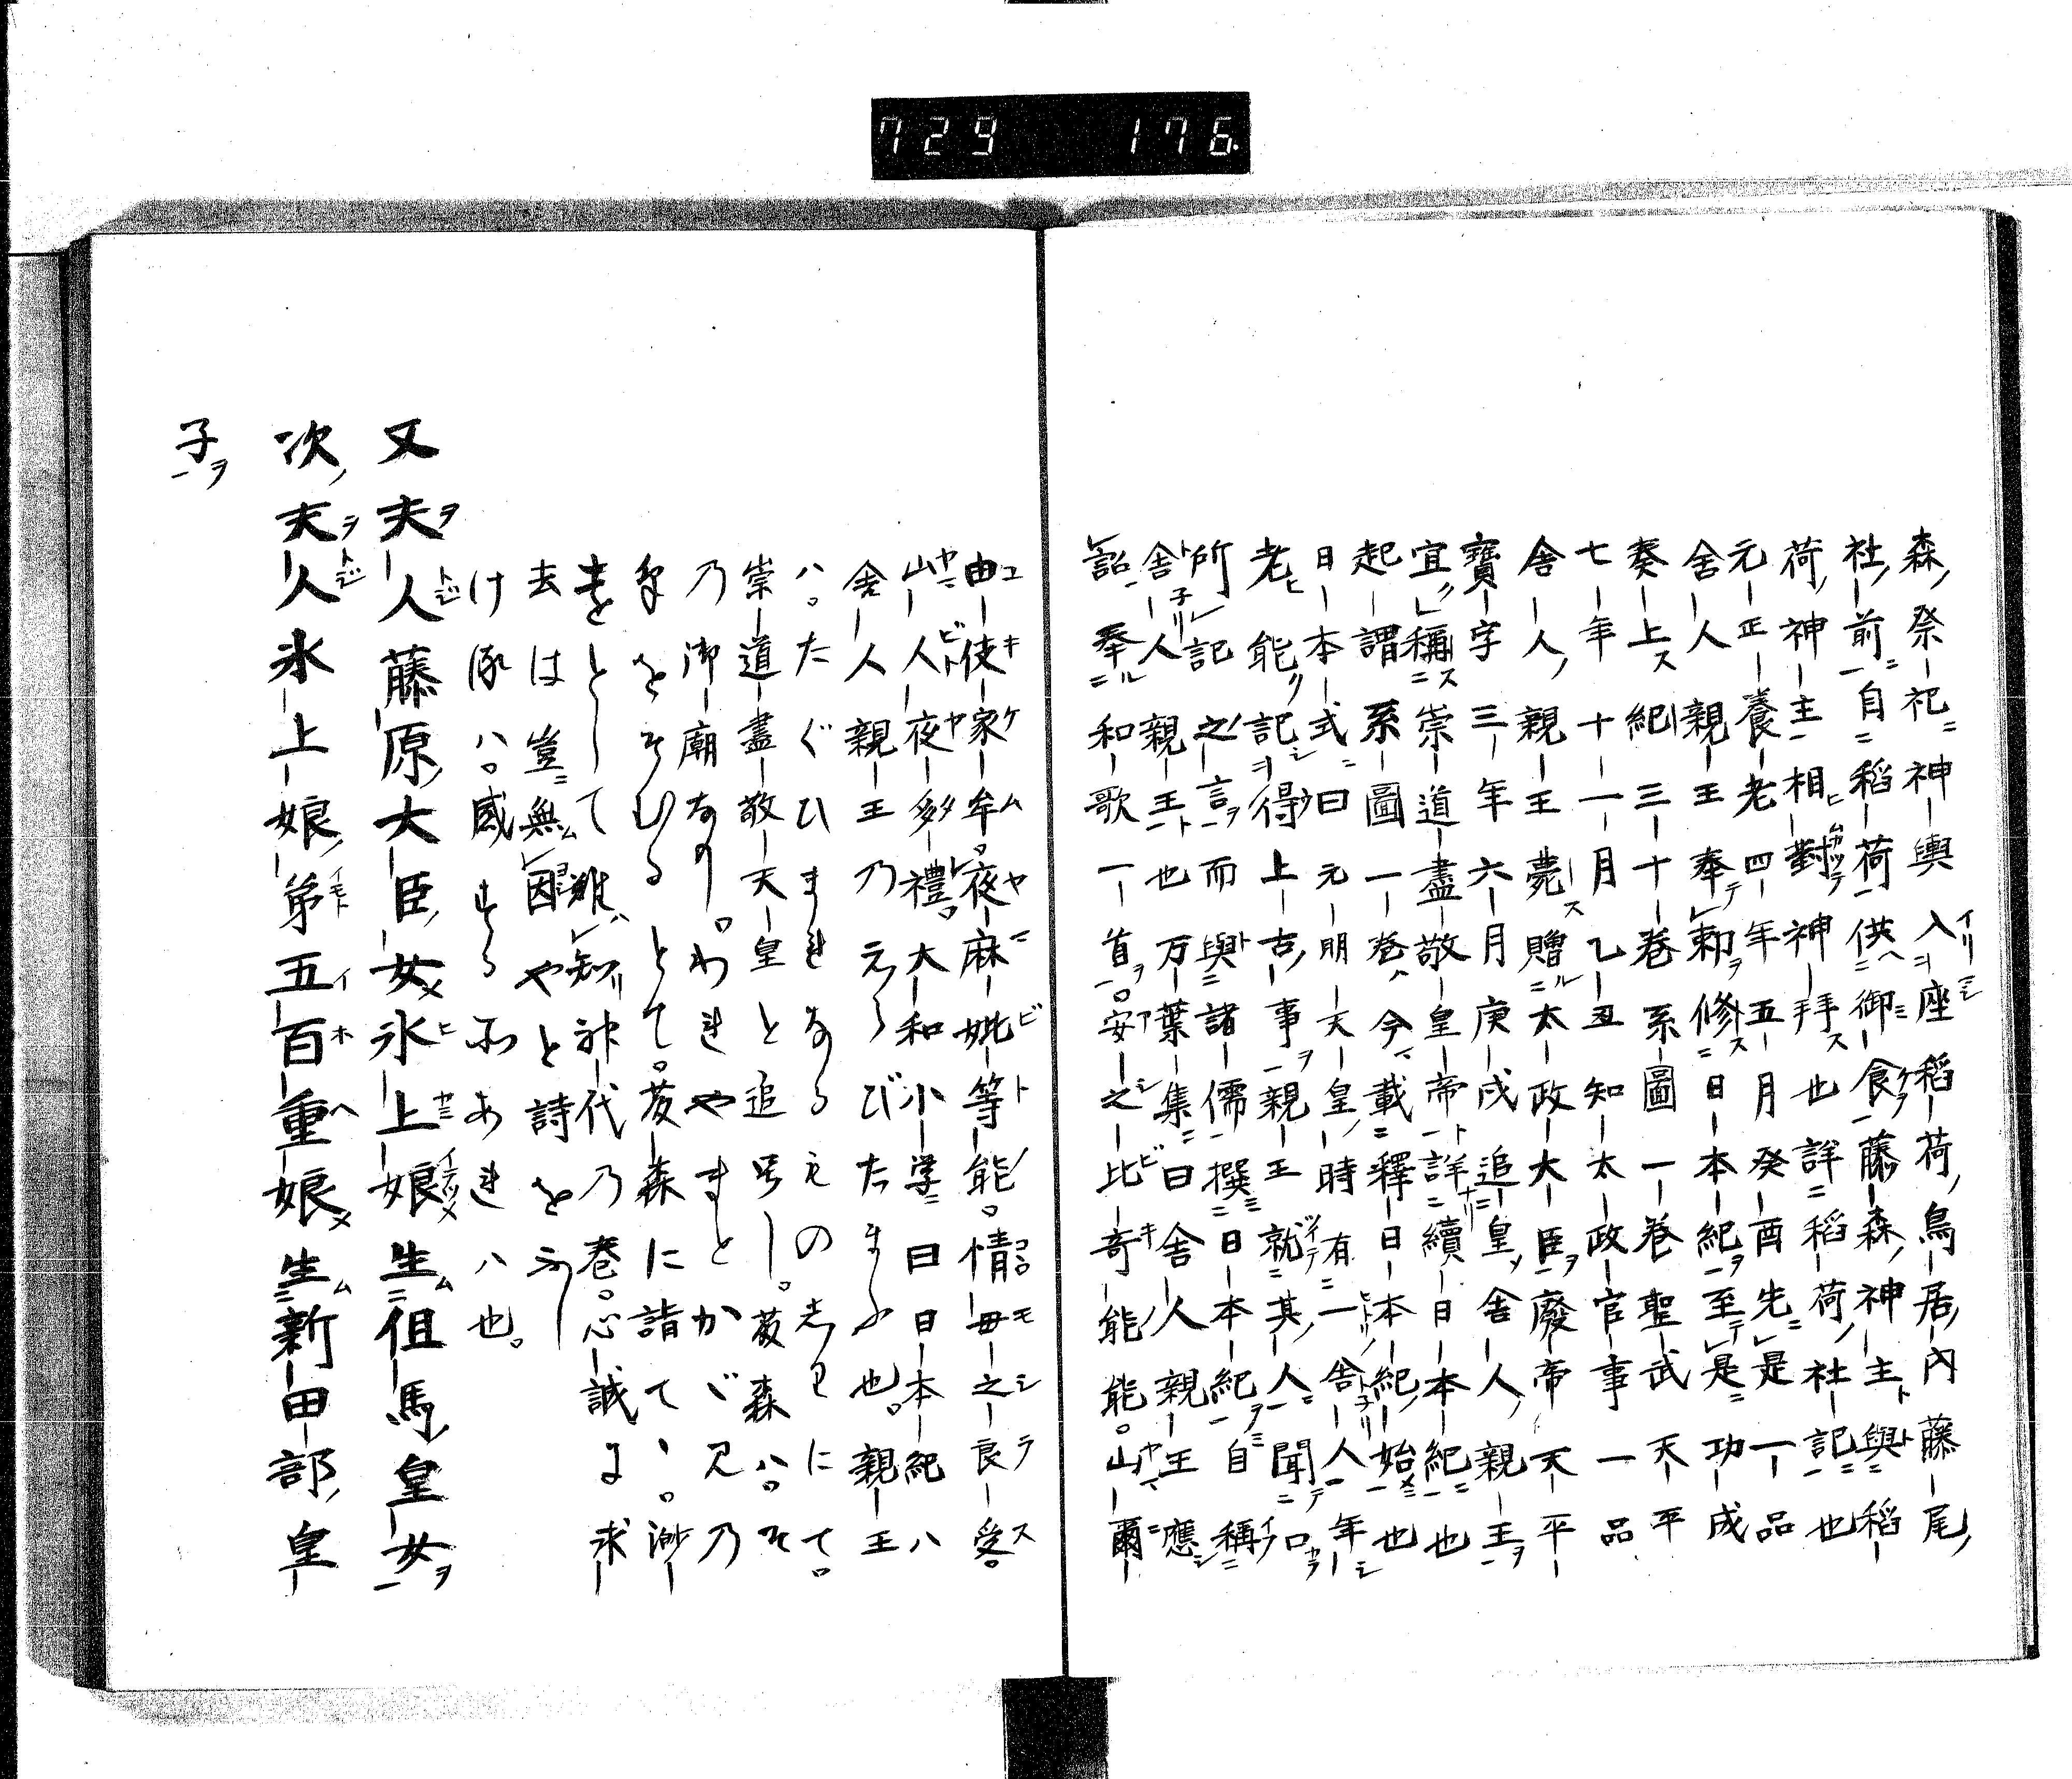 729 176
森祭祀神輿入座稲荷鳥居内藤尾
社前自稲荷供御食藤森神主與稲
荷神主相對神拜也詳稲荷社記也
元正養老四年五月癸酉先是一品
舎人親王奉勅修日本紀至是功成
奏上紀三十巻系圖一巻聖武天平
七年十一月乙丑知太政官事一品
舎人親王薨贈太政大臣廢帝天平
寶字三年六月庚戌追皇舎人親王
宜稱崇道盡敬皇帝詳續日本紀也
起謂系圖一巻今載釋日本紀始也
日本式曰元明天皇時有一舎人年
老能記得上古事親王就其人聞口
所記之言而與諸儒撰日本紀自稱
舎人親王也万葉集曰舎人親王應
詔奉和歌一首安之比奇能能山爾
由使家牟夜麻妣等能情毋之良受
山人夜多禮大和小学曰日本紀ハ
舎人親王乃えらびたまふ也親王
ハたぐひまれなるえの志わにて
崇道盡敬天皇と追号し藤森ハそ
乃御廟なりわれやまとかゞみ乃
をそむるとて藤森に詣て渺
としで難知神代乃巻心誠よ求
去は豈無因やと詩を
け ハ感 するあれハ也
又夫人藤原大臣女氷上娘生但馬皇女
次夫人氷上娘弟五百重娘生新田部皇
子